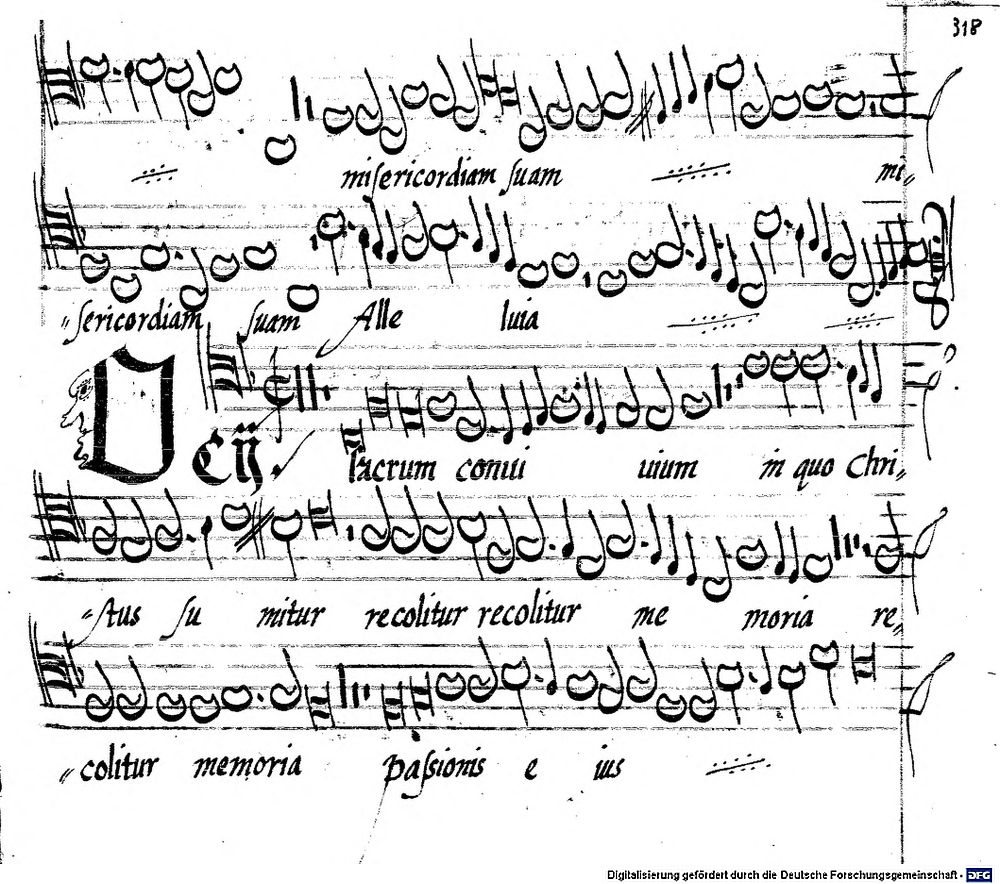 318
misericordiam suam mi„
„sericordiam suam Alle luia
O
Cij.
sacrum conui uium in quo Chri„
„stus su mitur recolitur recolitur me moria re„
„colitur memoria passionis e ius
Digitalisierung gefördert durch die Deutsche Forschungsgemeinschaft - DFG